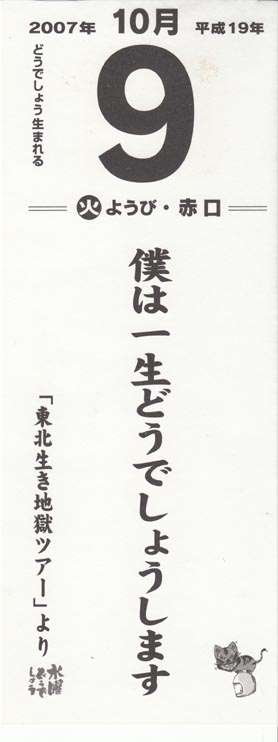 2007年 10月 平成19年
どうでしょう生まれる
9
火ようび・赤口
僕は一生どうでしょうします
「東北生き地獄ツアー」より
水曜
どうで
しょう